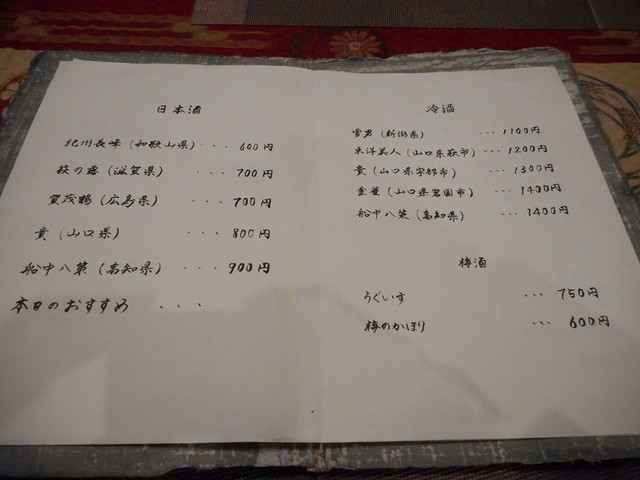 日本酒
紀州長峰(和歌山県)・・・600円
萩の露(滋賀県)・・・700円
賀茂鶴(広島県)・・・700円
貴(山口県)・・・800円
船中八策(高知県)・・・900円
本日のおすすめ・・・
冷酒
雪男(新潟県)・・・1100円
東洋美人(山口県萩市)・・・1200円
貴(山口県宇部市)・・・1300円
金雀(山口県岩国市)・・・1400円
船中八策(高知県)・・・1400円
梅酒
うぐいす・・・750円
梅のかほり・・・600円